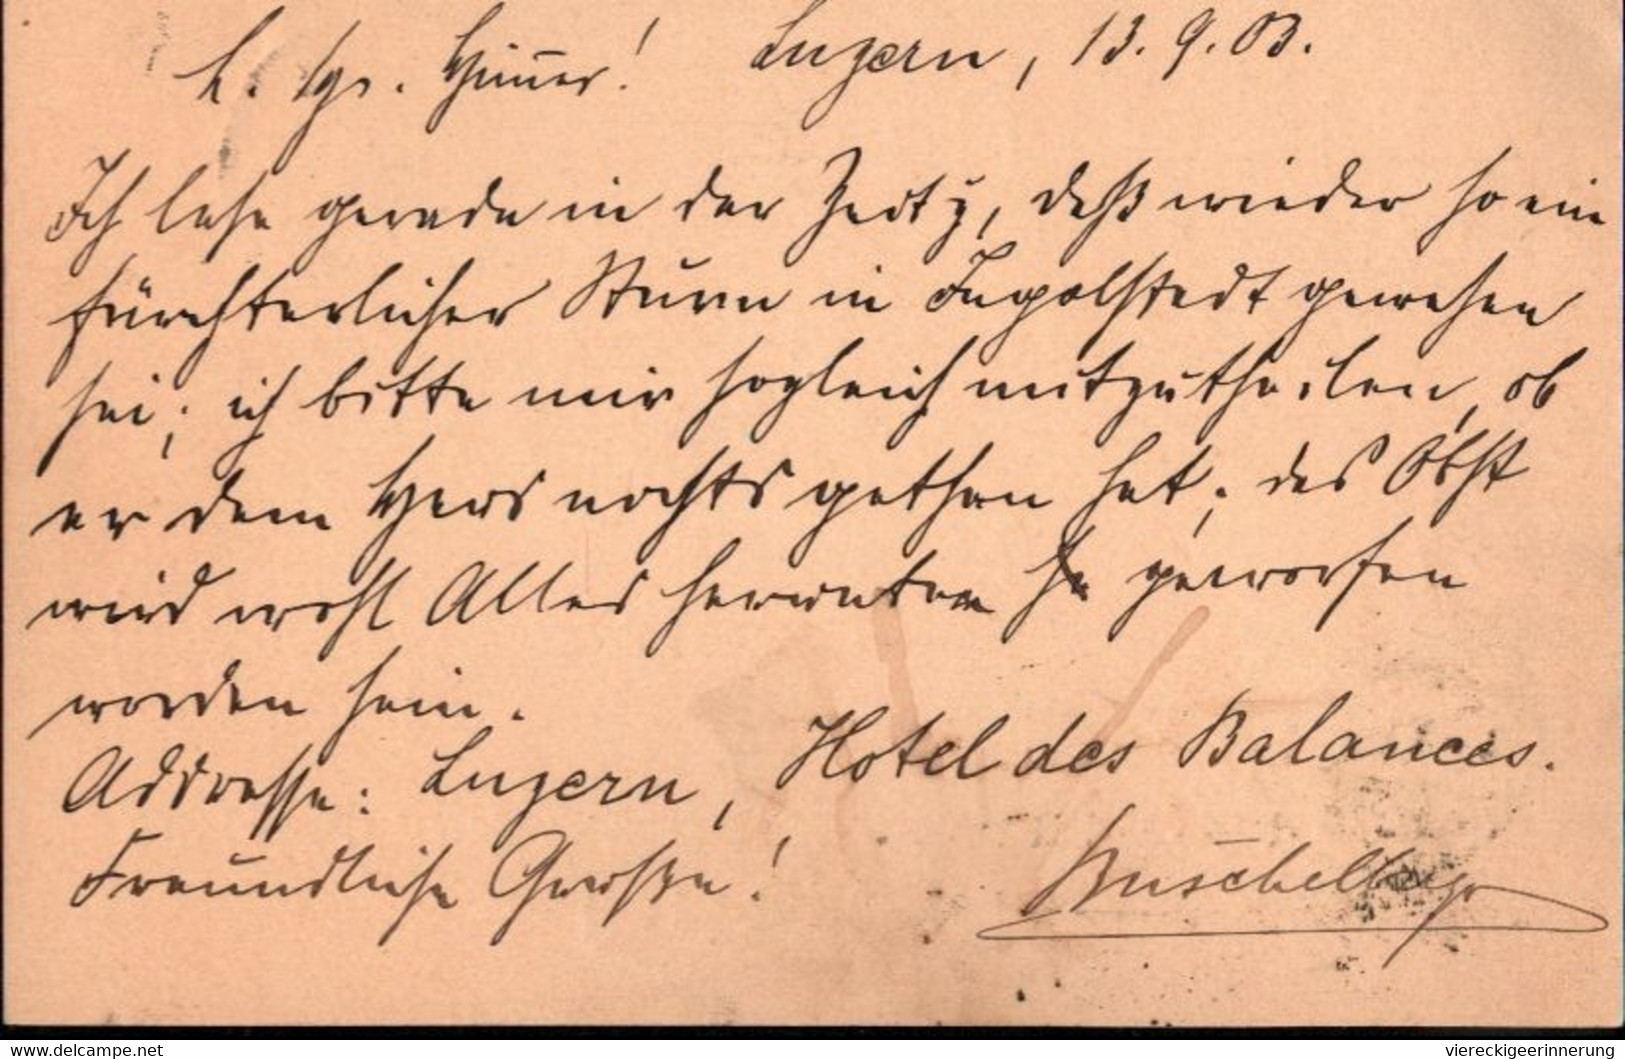 Luzern, 13. 9. 03.
Ich lese gerade in der Zeitg, daß wieder so ein
fürchterlicher Sturm in Ingolstadt gewesen
sei; ich bitte mir sogleich mitzutheilen, ob
er dem Haus nichts gethan hat; das Obst
wird wohl Alles herunter geworfen
worden sein.
Addresse: Luzern, Hotel des Balances.
Freundliche Grüße!
www.delcampe.net
viereckigeerinnerung